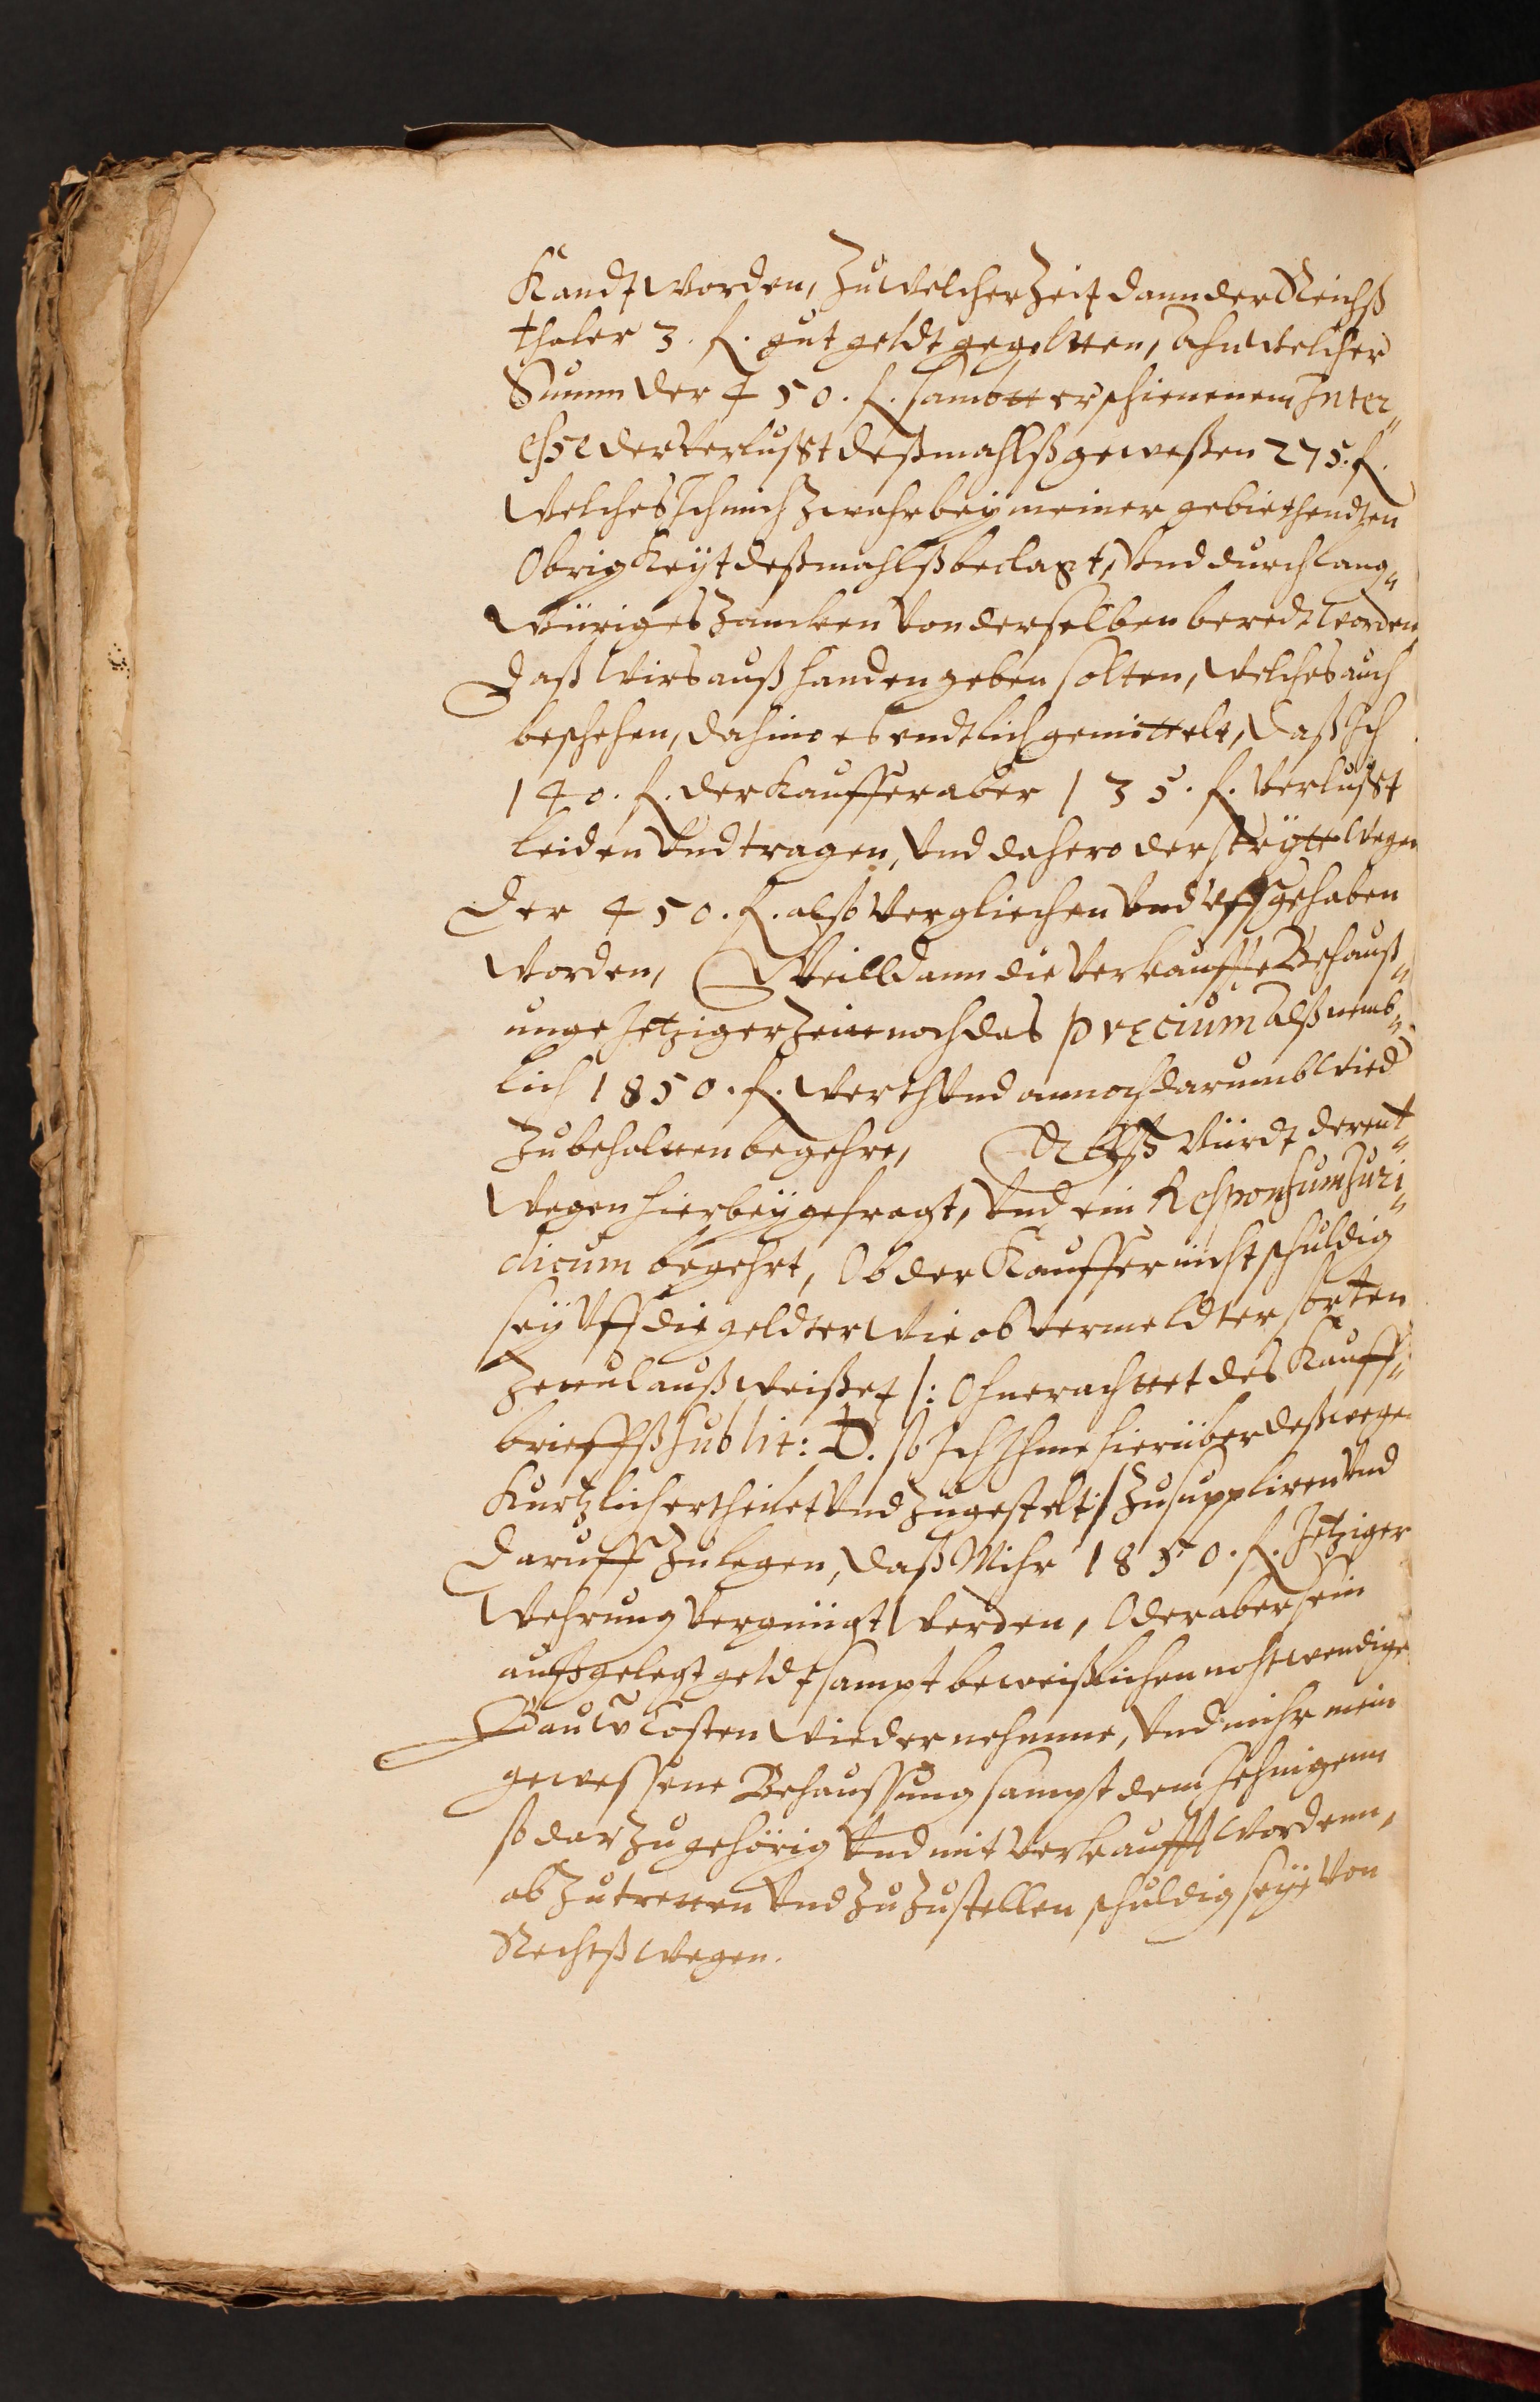 Kandt worden, Zu welcher Zeit dann der Reichß
thaler 3. f. gut geldt gegoltten, Ahn welcher
Summ der 450. f. sambtt erschienenem Inter„
esse der verlusst deßmahlß geweßen 275. f.
Welches Ich mich zwahr bey meiner gebiethendten
Obrigkeyt deßmahlß beclagt, Vnd durch lang„
würiges Zanckhen von derselben beredt worden
Daß wirs auß handen geben solten, welches auch
beschehen, da hins es endtlich gemittelt, Daß Ich
140. f. der Kauffer aber 135. f. verlusst
leiden Vnd tragen, Vnd dahero der streytt wegen
der 450. f. alß vergliechen Vnd vffgehaben
worden, Weill dann die verkauffte Behauß„
unge Jetziger Zeitt noch das precium alß nemb„
lich 1850. f. werth Vnd annoch darumb wied
Zu behaltten begehre, Alß würdt derent„
wegen hierbey gefragt, Vnd ein Responsum Juri„
dicum begehrt, Ob der Kauffer nicht schuldig
sey vff die geldter wie ob vermeldter sorten
Zettul außweißet /: Ohnerachttet des Kauff„
brieffß sub lit: D. so Ich Ihme hierüber deßwegen
Kurtzlich ertheilet Vnd zugestelt :/ Zu suppliren Vnd
daruff Zulegen, daß Mihr 1850. f. Jetziger
Wehrung vergnügt werden, Oder aber sein
außgelegt geldt sampt beweißlichen nohtwendigen
Bauw Costen wieder nehmme, Vnd mihr mein
gewessene Behaussung sampt dem Jehnigenn
so darzu gehörig Vnd mit verkaufft wordenn,
ab Zutretten Vnd Zu Zustellen schuldig seye Von
Rechtß wegen.